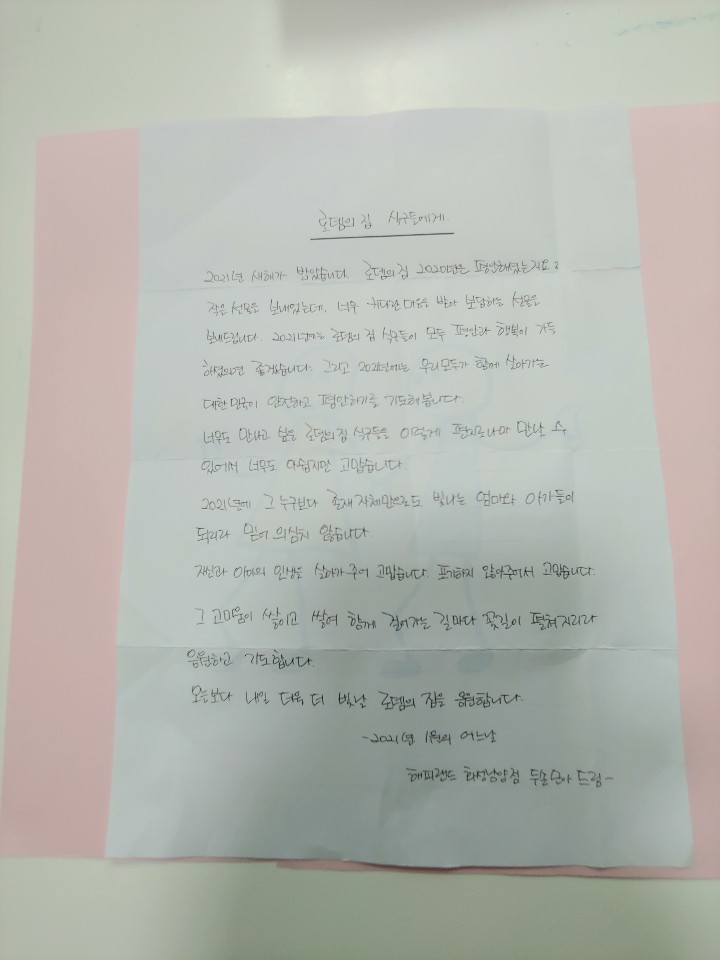 로뎀의 집 식구들에게
2021년 새해가 밝았습니다. 로뎀의 집 2020년은 평안하셨는지요?
작은 선물을 보내었는데, 너무 커다란 마음을 받아 보답하는 선물을
보내드립니다. 2021년에는 로뎀의 집 식구들이 모두 평안과 행복이 가득
하였으면 좋겠습니다. 그리고 2021년에는 우리모두가 함께 살아가는
대한민국이 안전하고 평안하기를 기도해봅니다.
너무도 만나고 싶은 로뎀의집 식구들을 이렇게 편지로나마 만날 수
있어서 너무도 아쉽지만 고맙습니다.
2021년에 그 누구보다 존재 자체만으로도 빛나는 엄마와 아가들이
되리라 믿어 의심치 않습니다.
자신과 아이의 인생을 살아가 주어 고맙습니다. 포기하지 않아주어서 고맙습니다.
그 고마움이 쌓이고 쌓여 함께 걸어가는 길마다 꽃길이 펼쳐지리라
응원하고 기도합니다.
오늘보다 내일 더욱 더 빛날 로뎀의 집을 응원합니다.
-2021년 1월의 어느날
해피랜드 화성남양점 두손모아 드림-